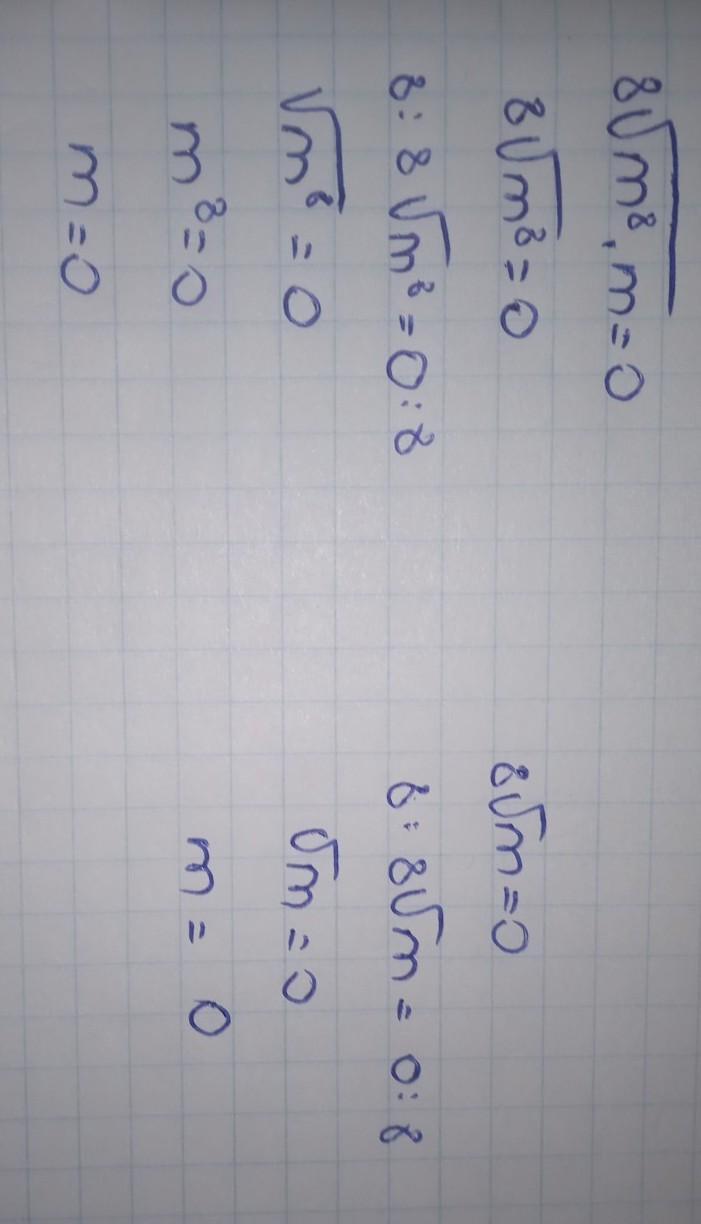 8√m⁸·m=0
8√m⁸=0
8:8√m⁸=0:8
√m⁸=0
m⁸=0
m=0
8√m=0
8:8√m=0:8
√m=0
m=0